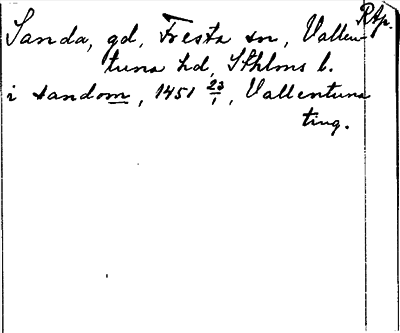 RAp.
Sanda, gd, Fresta sn, Vallen-
tuna hd, Sthlms l.
i sandom, 1451 23/1, Vallentuna
ting.